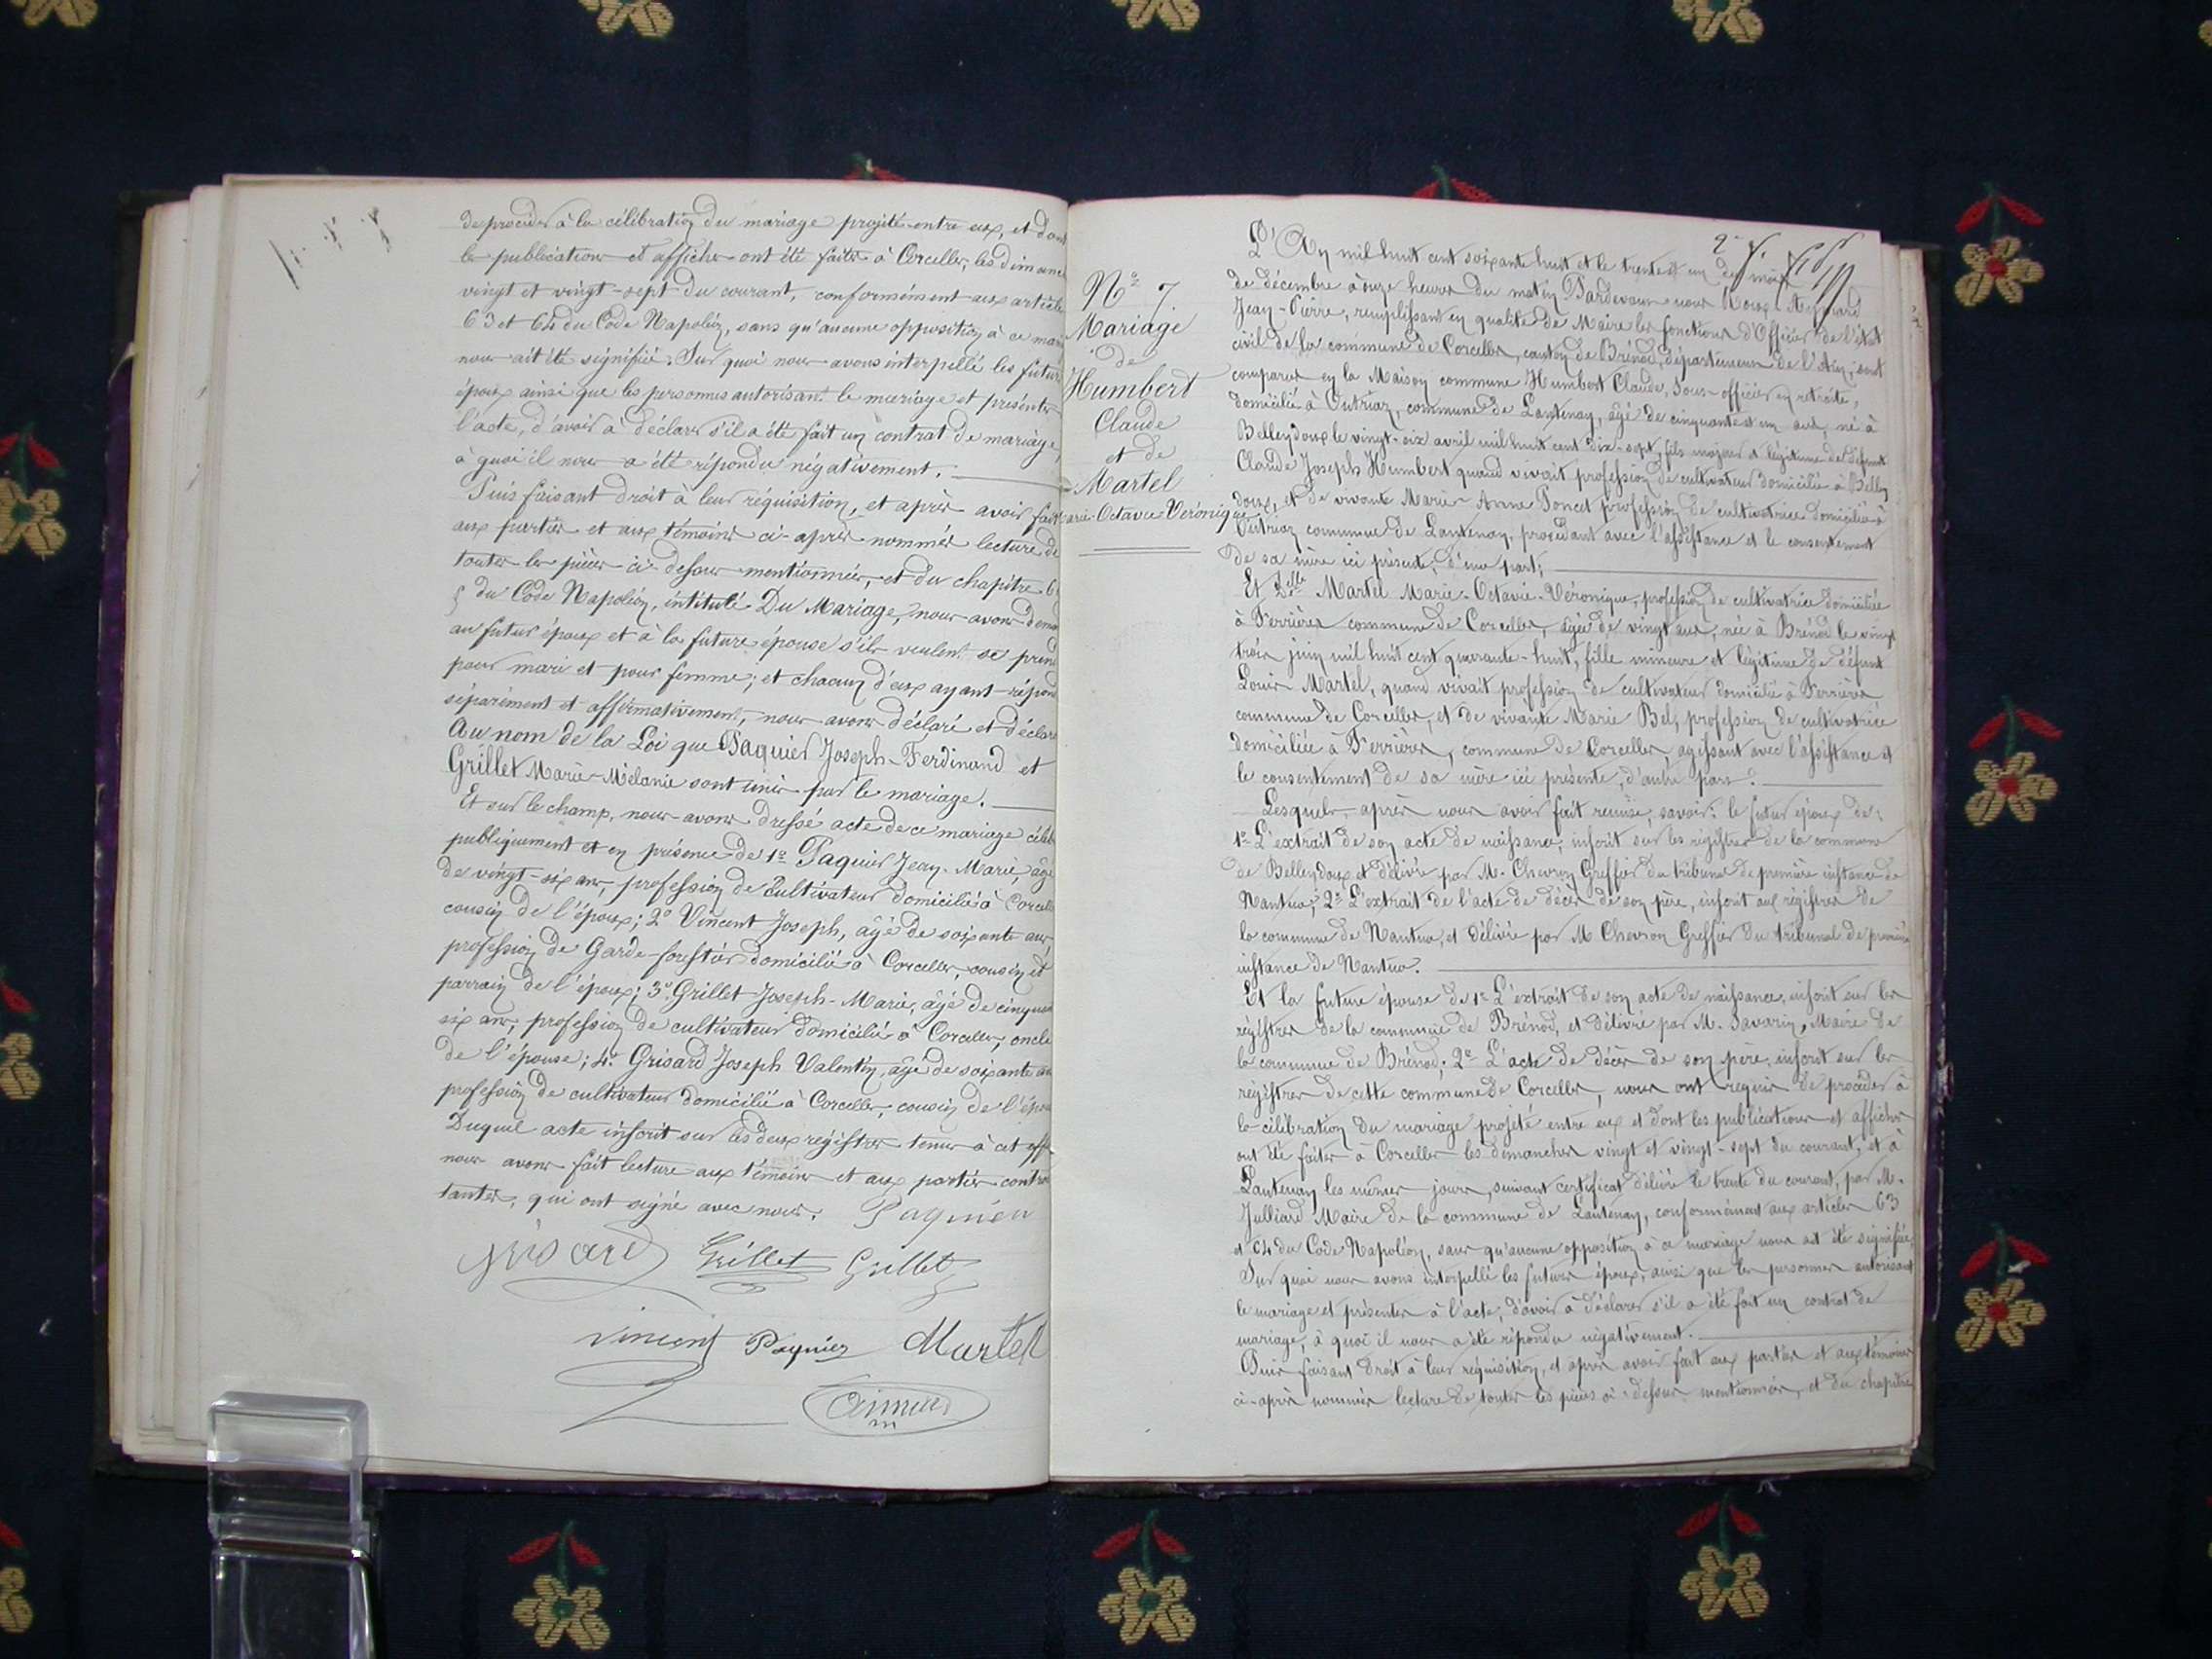 de procéder à la célébration du mariage projeté entre eux, et dont
les publications et affiches ont été faites à Corcelles, les dimanc
vingt et vingt-sept du courant, conformément aux article
63 et 64 du Code Napoléon, sans qu'aucune opposition à ce mari
nous ait été signifiée. Sur quoi nous avons interpellé les futur
époux ainsi que les personnes autorisant le mariage et présentes
l'acte, d'avoir à déclarer s'il a été fait un contrat de mariage,
à quoi il nous a été répondu négativement.
Puis faisant droit à leur réquisition, et après avoir fait
aux parties et aux témoins ci-après nommés lecture de
toutes les pièces ci-dessus mentionnées, et du chapitre 6
du Code Napoléon, intitulé Du Mariage, nous avons deman
au futur époux et à la future épouse s'ils veulent se prend
pour mari et pour femme; et chacun d'eux ayant répond
séparément et affirmativement, nous avons déclaré et déclar
Au nom de la Loi que Paquier Joseph-Ferdinand et
Grillet Marie-Mélanie sont unis par le mariage.
Et sur le champ, nous avons dressé acte de ce mariage céléb
publiquement et en présence de 1º Paquier Jean-Marie, âgé
de vingt-six ans, profession de Cultivateur domicilié à Corcelle
cousin de l'époux; 2º Vincent Joseph, âgé de soixante ans,
profession de Garde-forestier domicilié à Corcelles, cousin et
parrain de l'époux; 3º Grillet Joseph-Marie, âgé de cinquan
six ans, profession de cultivateur domicilié à Corcelles, oncle
de l'épouse; 4º Grisard Joseph Valentin, âgé de soixante an
profession de cultivateur domicilié à Corcelles, cousin de l'épou
Duquel acte inscrit sur les deux registres tenus à cet eff
nous avons fait lecture aux témoins et aux parties contrac
tantes, qui ont signé avec nous. Paquier
Grisard Grillet Grillet
Vincent Paquier Martel
Nº 7
Mariage
de
Humbert
Claude
et de
Martel
arie-Octavie-Véronique
L'An mil huit cent soixante huit et le trente et un du mois
de décembre à onze heures du matin Pardevant nous
Jean-Pierre, remplissant en qualité de Maire les fonctions d'Officier de l'état
civil de la commune de Corcelles, canton de Brénod, département de l'Ain, sont
comparus en la Maison commune Humbert Claude, Sous-officier en retraite,
domicilié à Outriaz, commune de Lantenay, âgé de cinquante et un ans, né à
Belleydoux le vingt-six avril mil huit cent dix-sept, fils majeur et légitime de défunt
Claude Joseph Humbert quand vivait profession de cultivateur domicilié à Belley
doux, et de vivante Marie-Anne Poncet profession de cultivatrice domiciliée à
Outriaz commune de Lantenay, procédant avec l'assistance et le consentement
de sa mère ici présente, d'une part;
Et Delle Martel Marie-Octavie-Véronique, profession de cultivatrice domiciliée
à Ferrières commune de Corcelles, âgée de vingt ans, née à Brénod le vingt
trois juin mil huit cent quarante-huit, fille mineure et légitime de défunt
Louis Martel, quand vivait profession de cultivateur domicilié à Ferrières
commune de Corcelles, et de vivante Marie Bel, profession de cultivatrice
domiciliée à Ferrières, commune de Corcelles, agissant avec l'assistance et
le consentement de sa mère ici présente, d'autre part.
Lesquels, après nous avoir fait remise, savoir: le futur époux de:
1º L'extrait de son acte de naissance, inscrit sur les registres de la commune
de Belleydoux et délivré par M. Chevron Greffier du tribunal de première instance de
Nantua; 2º L'extrait de l'acte de décès de son père, inscrit aux registres de
la commune de Nantua, et délivré par M Chevron Greffier du tribunal de première
instance de Nantua.
Et la future épouse de 1º L'extrait de son acte de naissance, inscrit sur les
registres de la commune de Brénod, et délivré par M. Savarin, Maire de
la commune de Brénod; 2º L'acte de décès de son père, inscrit sur les
registres de cette commune de Corcelles, nous ont requis de procéder à
la célébration du mariage projeté entre eux et dont les publications et affiches
ont été faites à Corcelles les dimanches vingt et vingt-sept du courant, et à
Lantenay les mêmes jours, suivant certificat délivré le trente du courant, par M.
Julliard Maire de la commune de Lantenay, conformément aux articles 63
et 64 du Code Napoléon, sans qu'aucune opposition à ce mariage nous ait été signifiée,
Sur quoi nous avons interpellé les futurs époux, ainsi que les personnes autorisant
le mariage et présentes à l'acte, d'avoir à déclarer s'il a été fait un contrat de
mariage, à quoi il nous a été répondu négativement.
Puis faisant droit à leur réquisition, et après avoir fait aux parties et aux témoins
ci-après nommés lecture de toutes les pièces ci-dessus mentionnées, et du chapitre